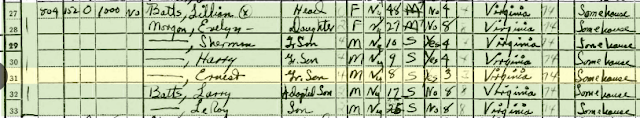 27 804 152 O 1000 No Batts, Lillian (x) Head F Ng 48 M No 4 Virginia 74 Same house
28 Morgan, Evelyn — Daughter F Ng 27 M No 8 Virginia 74 Same house
29 ——, Sherman Gr. Son M Ng 10 S Yes 4 Virginia 74 Same house
30 ——, Harry Gr. Son M Ng 9 S Yes 4 Virginia 74 Same house
31 ——, Ernest Gr. Son M Ng 8 S Yes 3 Virginia 74 Same house
32 Batts, Larry Adopted Son M Ng 17 S No 8 Virginia 74 Same house
33 ——, LeRoy Son M Ng 25 S No 8 Virginia 74 Same house